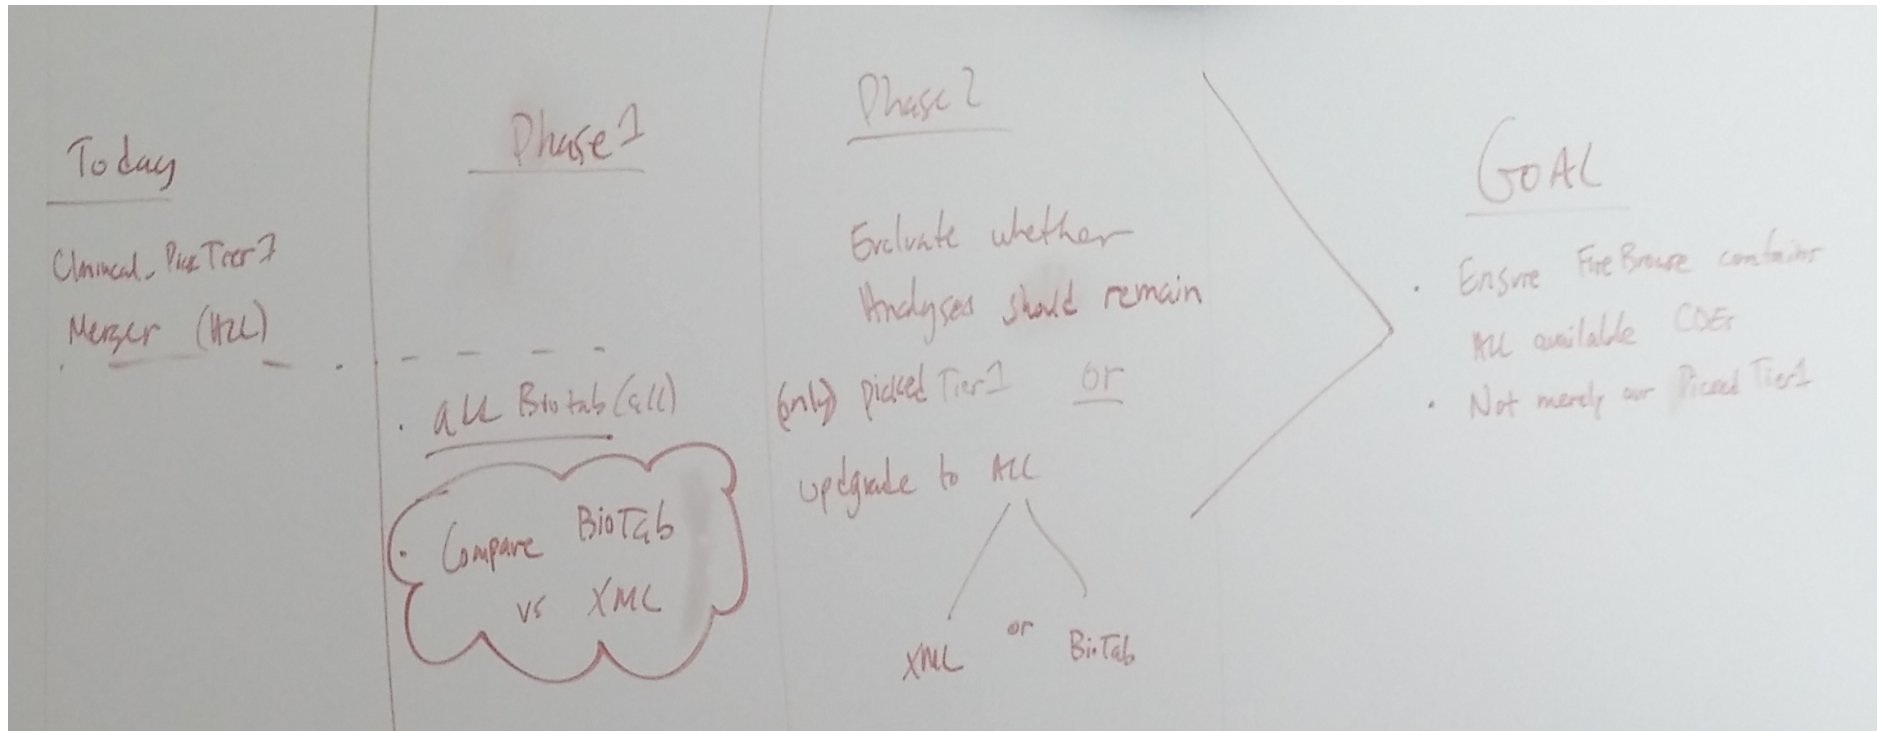 Today
Clinical_Pick Tier1
Merger (ALL)
Phase 1
. all Biotab (all)
. Compare BioTab
vs XML
Phase 2
Evaluate whether
Analyses should remain
(only) picked Tier1 or
updgrade to ALL
XML or BioTab
GOAL
. Ensure FireBrowse contains
ALL available CDEs
. Not merely our Picked Tier1